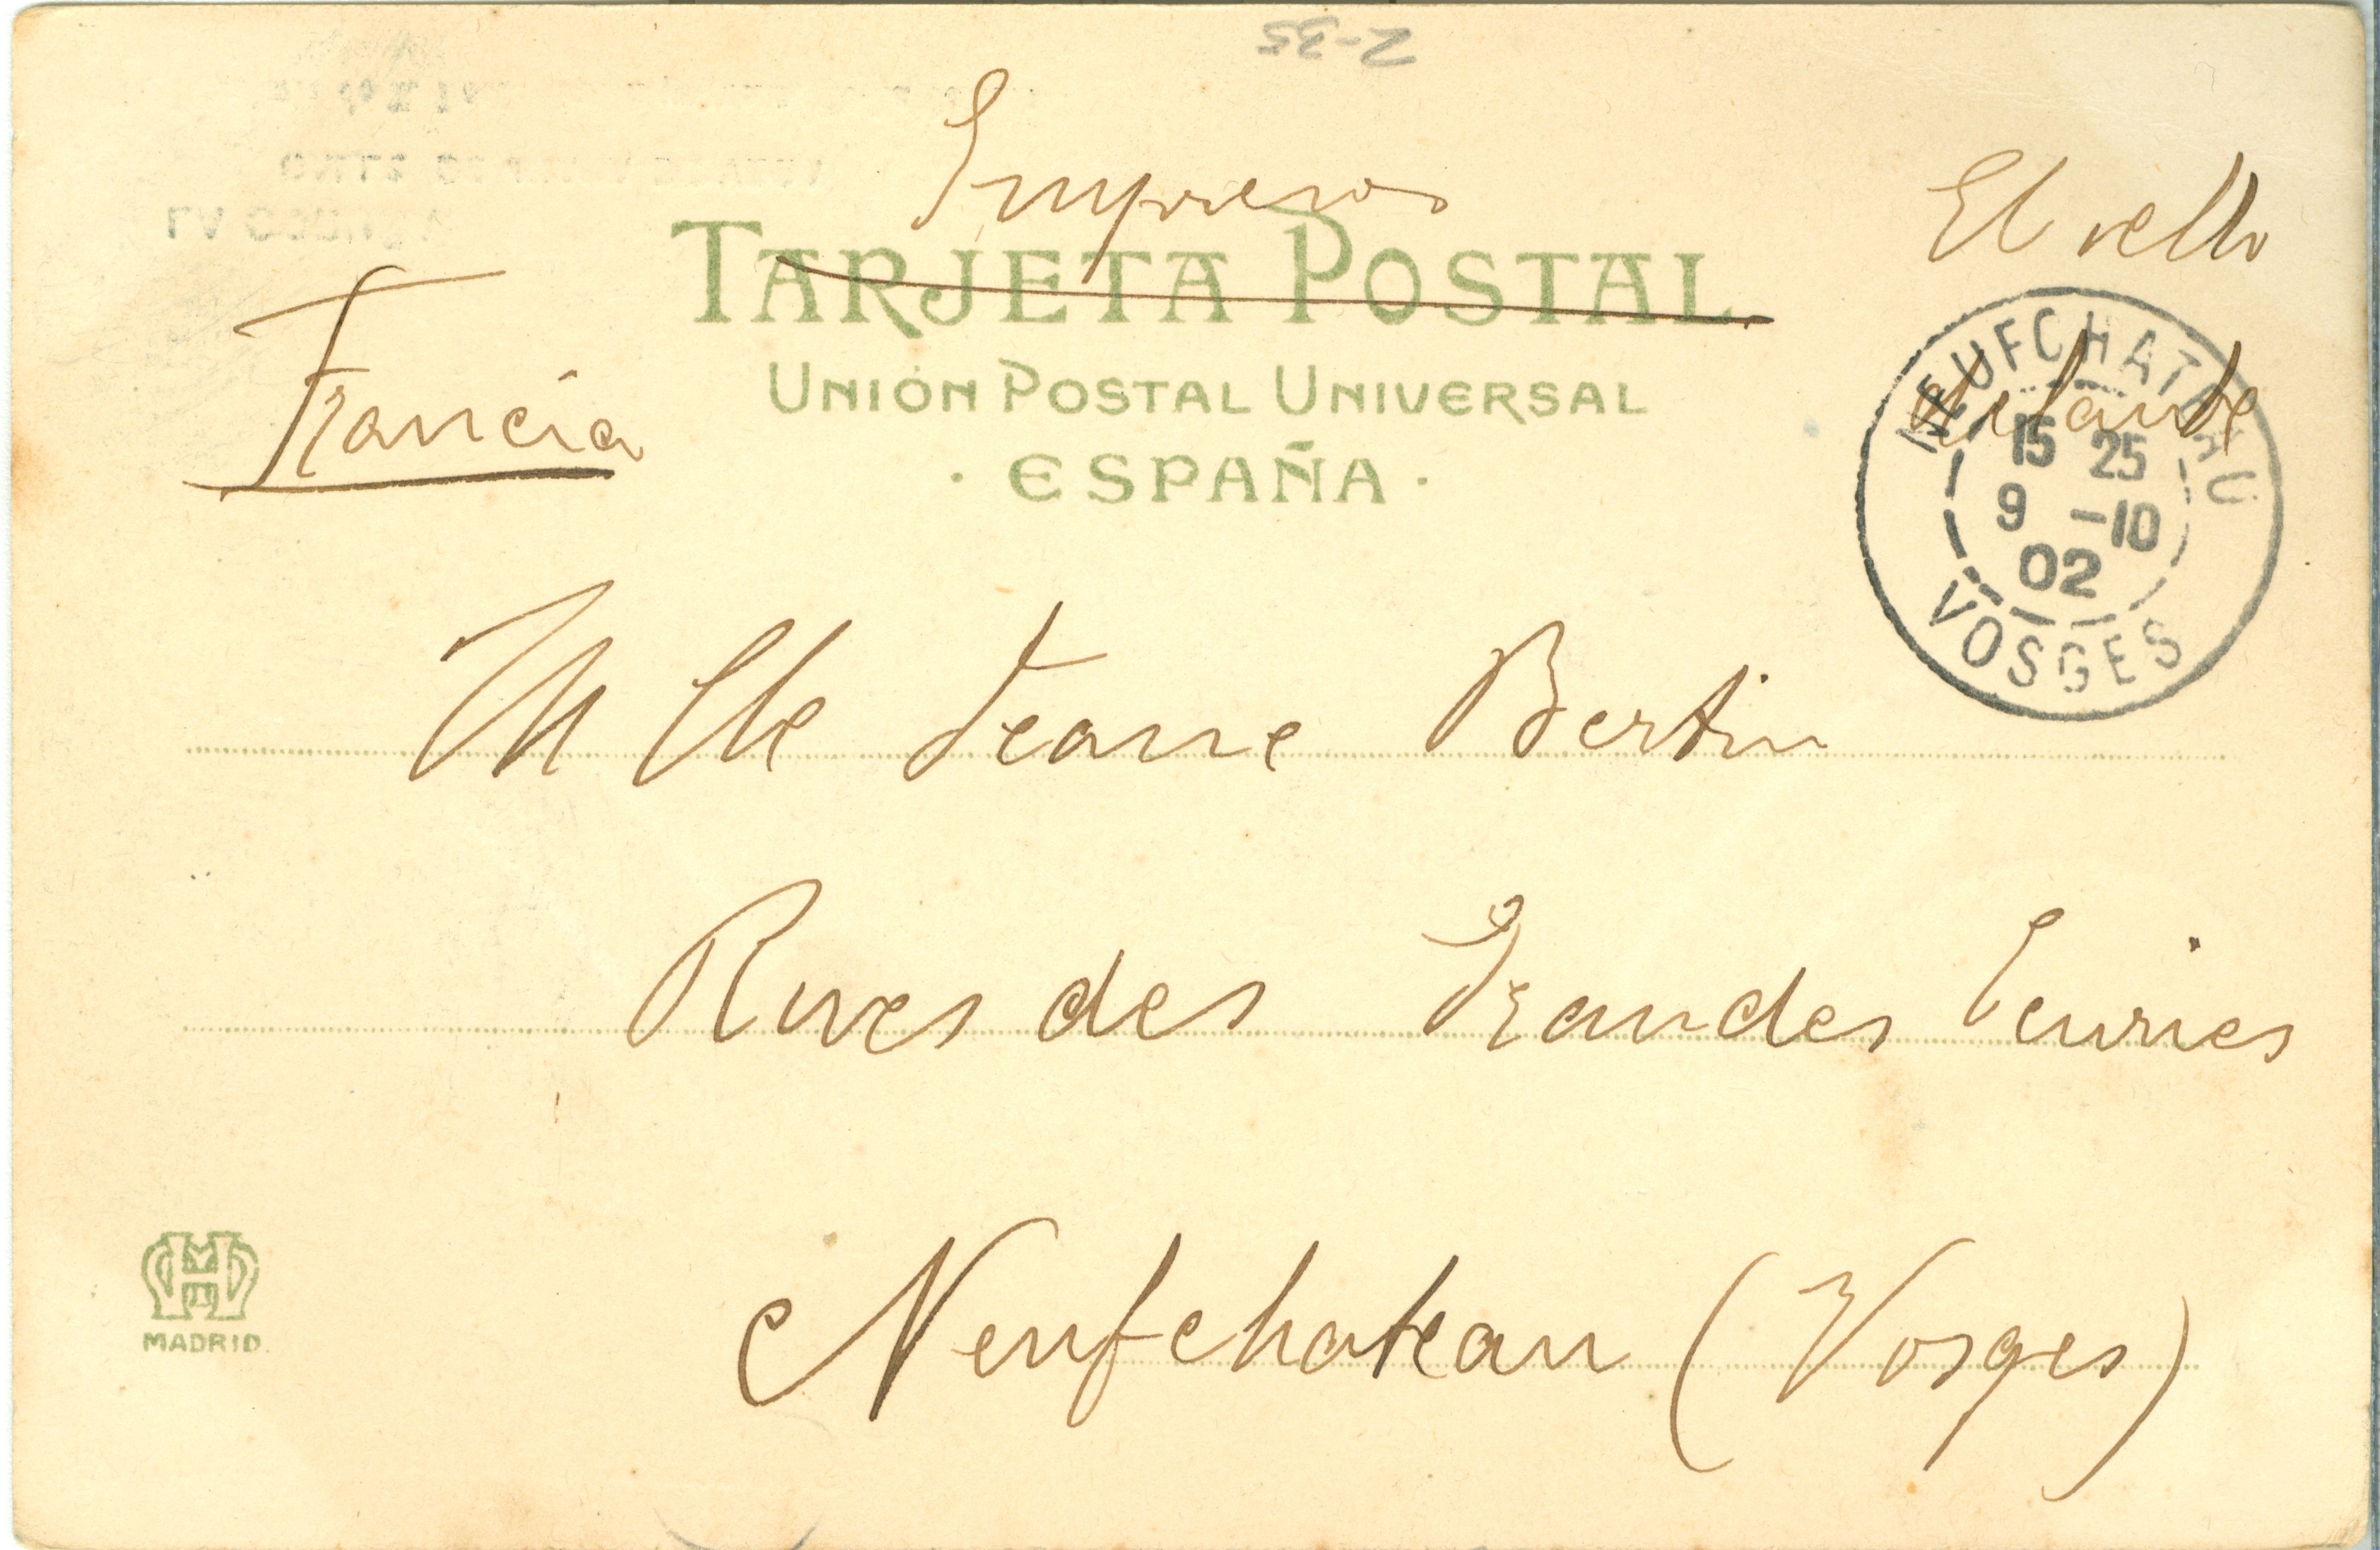 2-35
Impresos
El sello
delante
TARJETA POSTAL
UNIÓN POSTAL UNIVERSAL
· ESPAÑA ·
Francia
NEUFCHATEAU
15 25
9 -10
02
VOSGES
Mlle Jeanne Bertin
Rues des Grandes Ecuries
Neufchateau (Vosges)
MADRID.